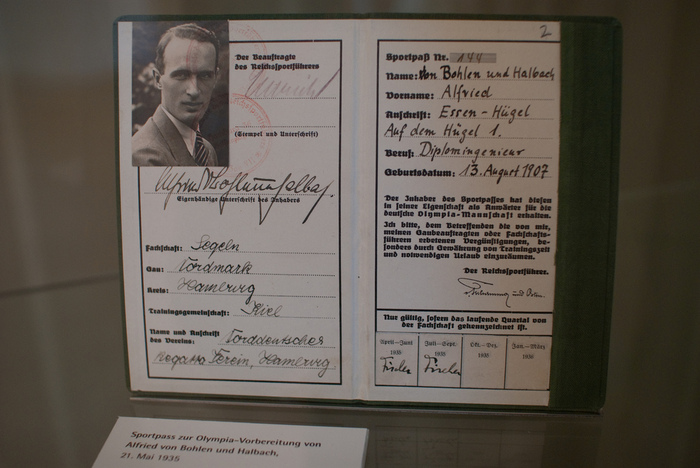 Der Beauftragte
des Reichssportführers
(Stempel und Unterschrift)
Eigenhändige Unterschrift des Inhabers
Fachschaft: Segeln
Gau: Nordmark
Kreis: Hamburg
Trainingsgemeinschaft: Kiel
Name und Anschrift
des Vereins: Norddeutscher
Regatta Verein, Hamburg
2
Sportpaß Nr. 144
Name: von Bohlen und Halbach
Vorname: Alfried
Anschrift: Essen-Hügel
Auf dem Hügel 1.
Beruf: Diplomingenieur
Geburtsdatum: 13. August 1907
Der Inhaber des Sportpasses hat diesen
in seiner Eigenschaft als Anwärter für die
deutsche Olympia-Mannschaft erhalten.
Ich bitte, dem Betreffenden die von mir,
meinen Gaubeauftragten oder Fachschafts-
führern erbetenen Vergünstigungen, be-
sonders durch Gewährung von Trainingszeit
und notwendigen Urlaub einzuräumen.
Der Reichssportführer.
Nur gültig, sofern das laufende Quartal von
der Fachschaft gekennzeichnet ist.
April-Juni 1935
Juli-Sept. 1935
Okt.-Dez. 1935
Jan.-März 1936
Sportpass zur Olympia-Vorbereitung von
Alfried von Bohlen und Halbach,
21. Mai 1935